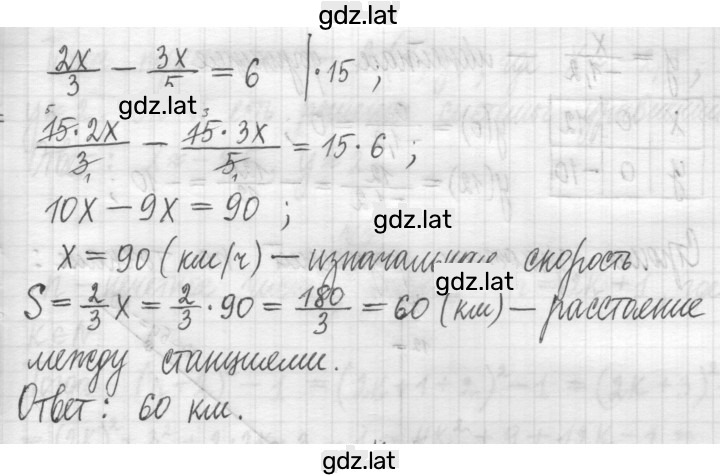 gdz.lat
2x/3 − 3x/5 = 6 | · 15 ;
gdz.lat
15·2x/3 − 15·3x/5 = 15·6 ;
10x − 9x = 90 ;
gdz.lat
x = 90 (км/ч) — изначальная скорость.
gdz.lat
S = 2/3 x = 2/3 · 90 = 180/3 = 60 (км) — расстояние
между станциями.
Ответ: 60 км.
gdz.lat